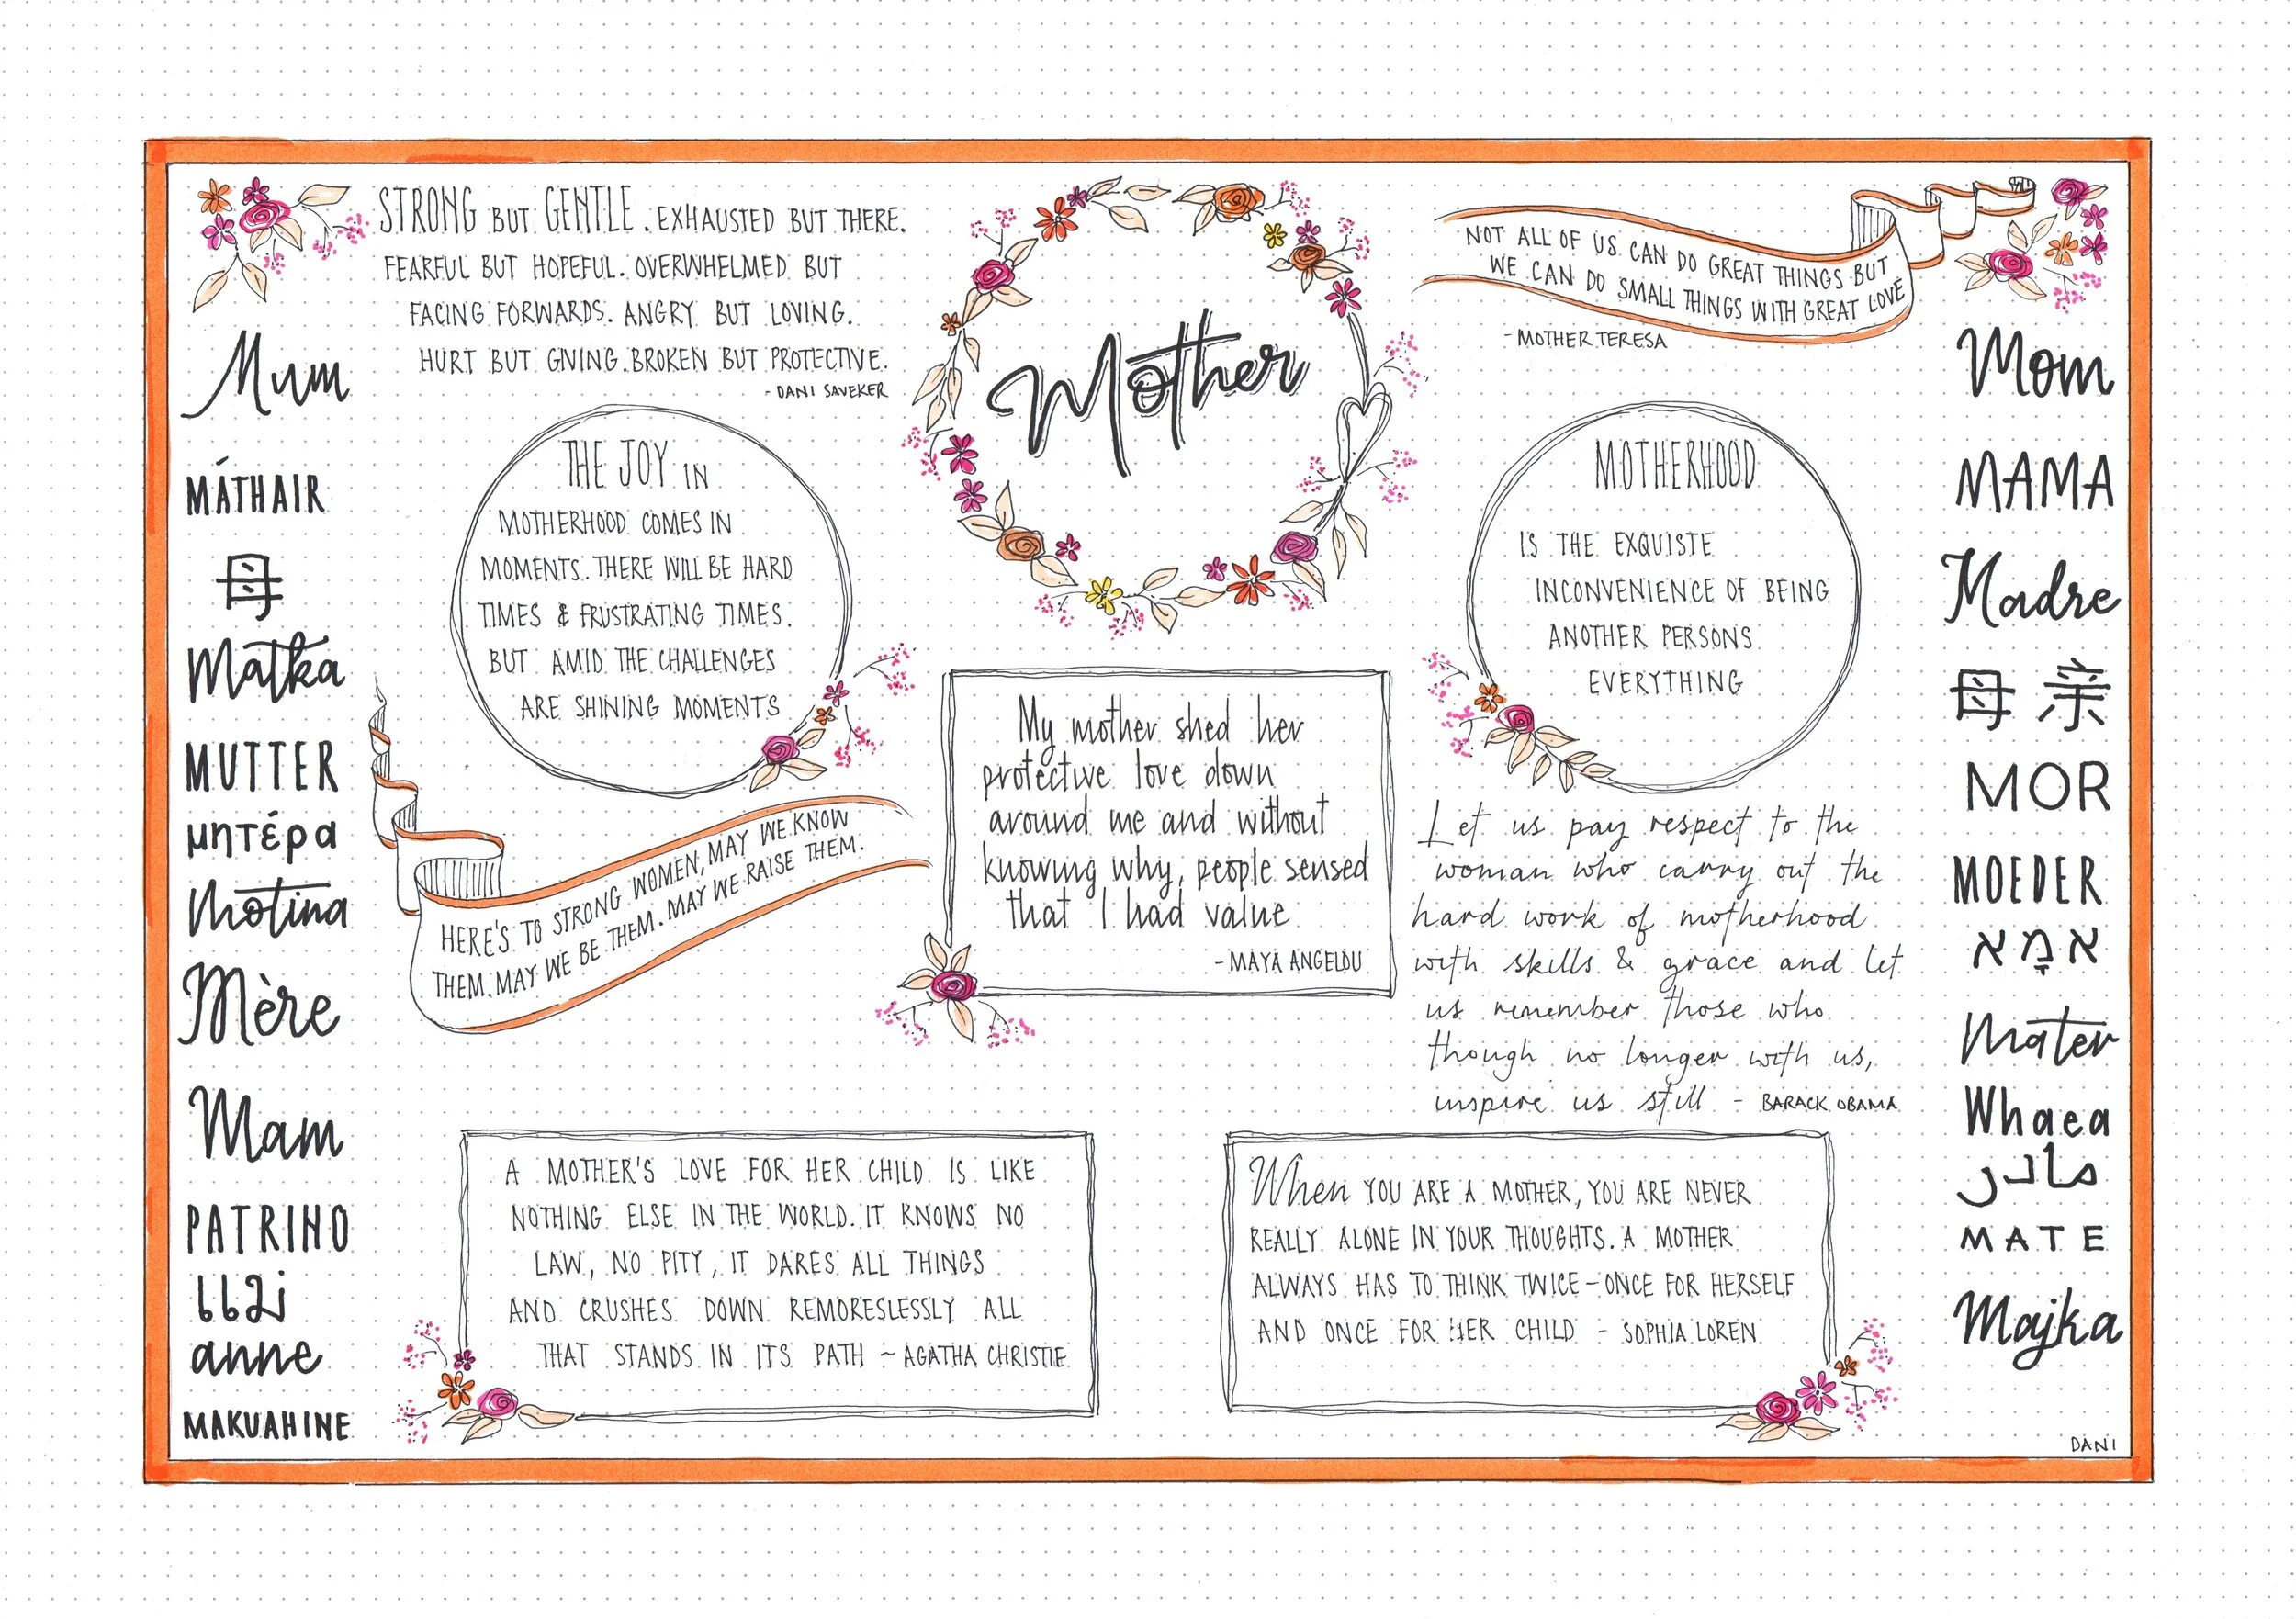 STRONG BUT GENTLE. EXHAUSTED BUT THERE.
FEARFUL BUT HOPEFUL. OVERWHELMED BUT
FACING FORWARDS. ANGRY BUT LOVING.
HURT BUT GIVING. BROKEN BUT PROTECTIVE.
- DANI SAVEKER
Mother
NOT ALL OF US CAN DO GREAT THINGS BUT
WE CAN DO SMALL THINGS WITH GREAT LOVE
- MOTHER TERESA
Mum
MÁTHAIR
母
Matka
MUTTER
μητέρα
Motina
Mère
Mam
PATRINO
แม่
anne
MAKUAHINE
THE JOY IN
MOTHERHOOD COMES IN
MOMENTS. THERE WILL BE HARD
TIMES & FRUSTRATING TIMES.
BUT AMID THE CHALLENGES
ARE SHINING MOMENTS
HERE'S TO STRONG WOMEN, MAY WE KNOW
THEM. MAY WE BE THEM. MAY WE RAISE THEM.
My mother shed her
protective love down
around me and without
knowing why, people sensed
that I had value
- MAYA ANGELOU
MOTHERHOOD
IS THE EXQUISITE
INCONVENIENCE OF BEING
ANOTHER PERSONS
EVERYTHING
Let us pay respect to the
woman who carry out the
hard work of motherhood
with skills & grace and let
us remember those who
though no longer with us,
inspire us still - BARACK OBAMA
A MOTHER'S LOVE FOR HER CHILD IS LIKE
NOTHING ELSE IN THE WORLD. IT KNOWS NO
LAW, NO PITY, IT DARES ALL THINGS
AND CRUSHES DOWN REMORESLESSLY ALL
THAT STANDS IN ITS PATH ~ AGATHA CHRISTIE
When YOU ARE A MOTHER, YOU ARE NEVER
REALLY ALONE IN YOUR THOUGHTS. A MOTHER
ALWAYS HAS TO THINK TWICE - ONCE FOR HERSELF
AND ONCE FOR HER CHILD - SOPHIA LOREN
Mom
MAMA
Madre
母亲
MOR
MOEDER
אִמָא
Mater
Whaea
مادر
MATE
Majka
DANI